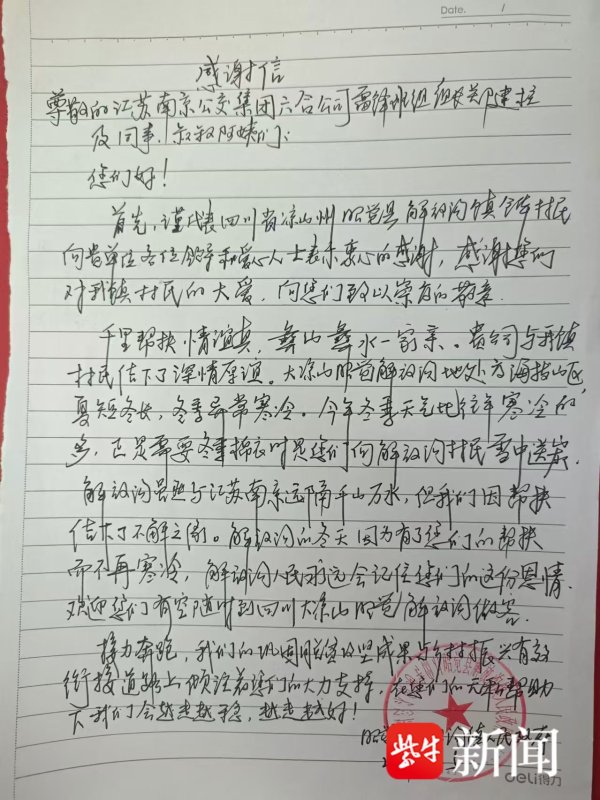 Date. /
感谢信
尊敬的江苏南京公交集团六合公司雷锋班组组长关建柱
及同事、叔叔阿姨们:
您们好!
首先,谨代表四川省凉山州昭觉县解放沟镇全体村民
向贵单位各位领导和爱心人士表示衷心的感谢,感谢您们
对我镇村民的大爱,向您们致以崇高的敬意。
千里帮扶情谊真,彝山彝水一家亲。贵公司与我镇
村民结下了深情厚谊。大凉山昭觉解放沟地处高海拔山区,
夏短冬长,冬季异常寒冷。今年冬季天气比往年寒冷的
多,正是需要冬季棉衣时是您们向解放沟村民雪中送炭。
解放沟虽然与江苏南京远隔千山万水,但我们因帮扶
结下了不解之缘。解放沟的冬天因为有了您们的帮扶
而不再寒冷,解放沟人民永远会记住您们的这份恩情。
欢迎您们有空随时到四川大凉山昭觉解放沟做客。
接力奔跑,我们的巩固脱贫攻坚成果与乡村振兴有效
衔接道路上倾注着您们的大力支持,在您们的无私帮助
下我们会越走越稳,越走越好!
昭觉 沟镇人民政府
紫牛新闻
deli得力